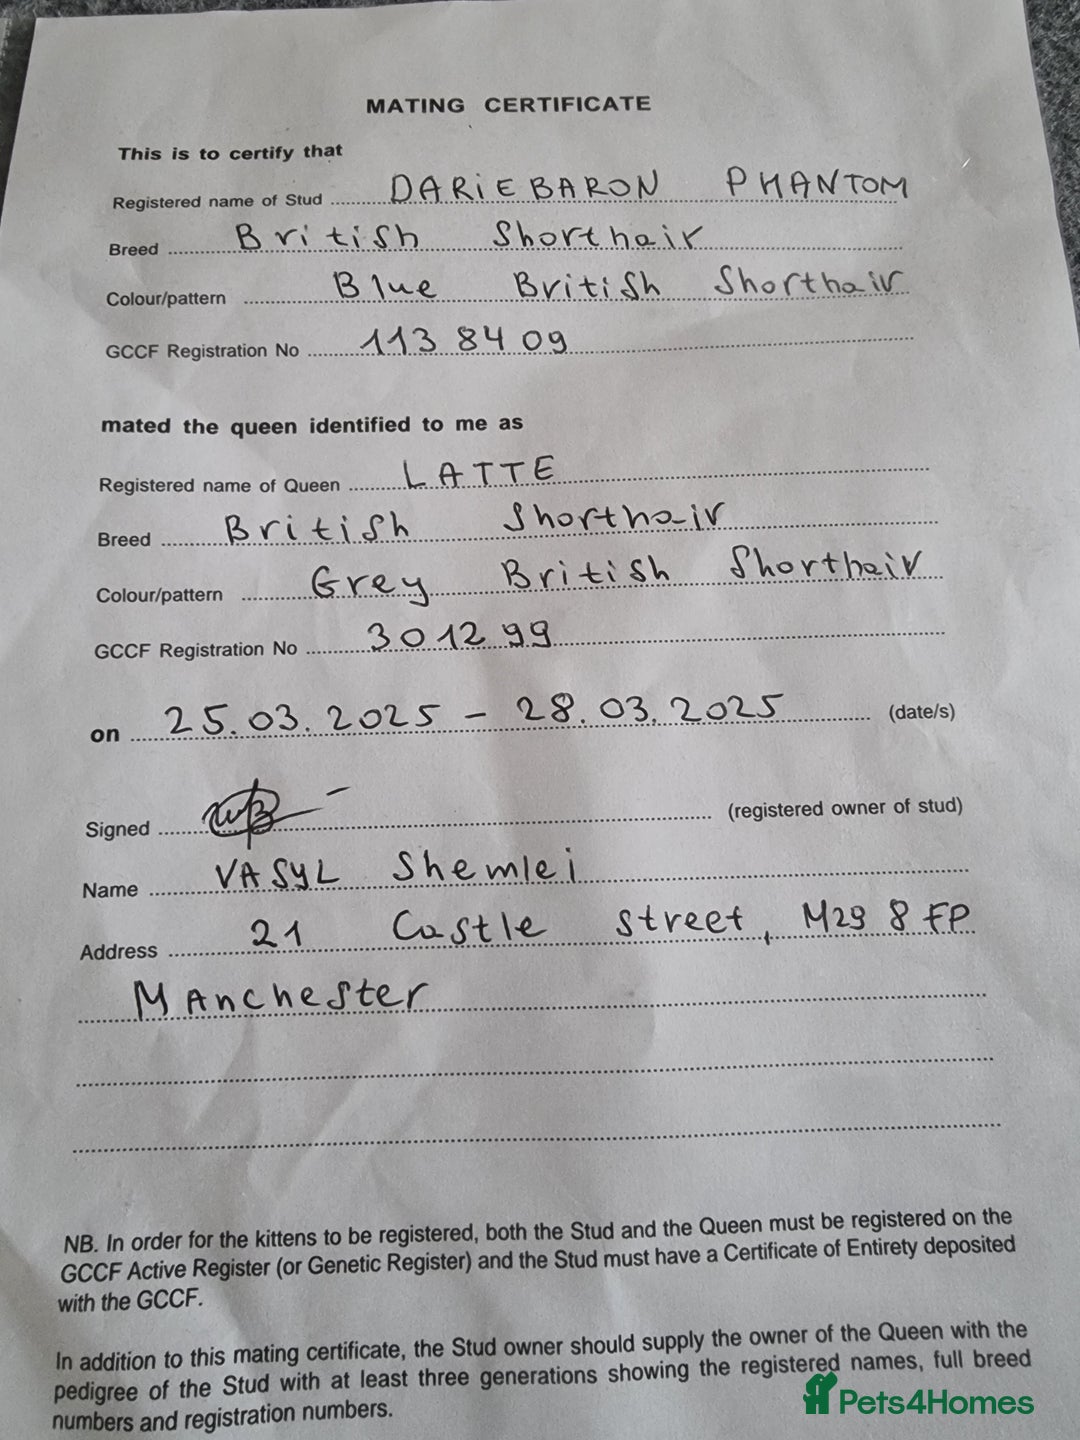 MATING CERTIFICATE
This is to certify that
Registered name of Stud DARIEBARON PHANTOM
Breed British Shorthair
Colour/pattern Blue British Shorthair
GCCF Registration No 113 84 09
mated the queen identified to me as
Registered name of Queen LATTE
Breed British Shorthair
Colour/pattern Grey British Shorthair
GCCF Registration No 3012 99
on 25.03.2025 - 28.03.2025 (date/s)
Signed (registered owner of stud)
Name VASYL Shemlei
Address 21 Castle street, M29 8 FP
MAnchester
NB. In order for the kittens to be registered, both the Stud and the Queen must be registered on the
GCCF Active Register (or Genetic Register) and the Stud must have a Certificate of Entirety deposited
with the GCCF.
In addition to this mating certificate, the Stud owner should supply the owner of the Queen with the
pedigree of the Stud with at least three generations showing the registered names, full breed
numbers and registration numbers.
Pets4Homes